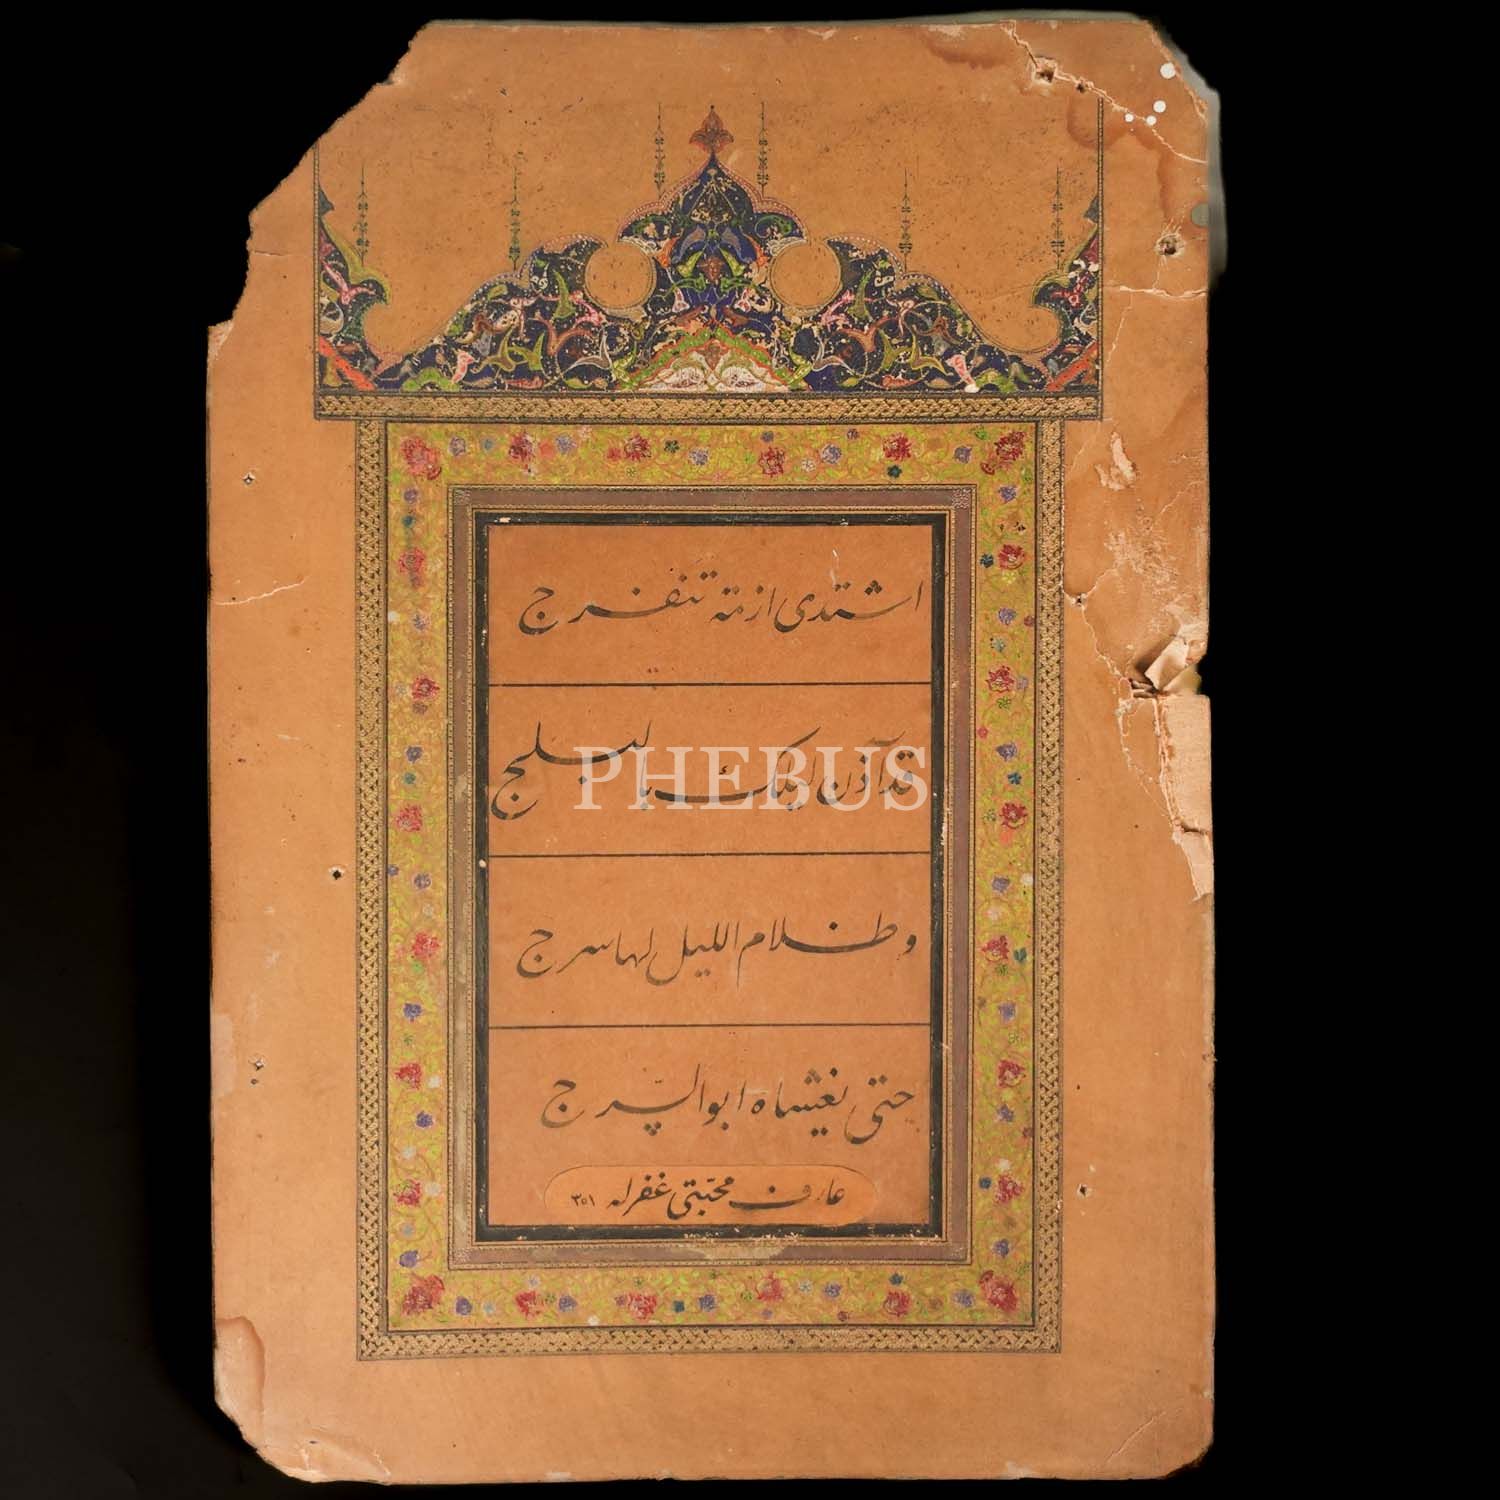 اشتدی ازمة تنفرج
قد آذن لیلك بالبلج
PHEBUS
وظلام اللیل لها سرج
حتی یغشاه ابو السرج
عارف محبتی غفرله ۳۵۱